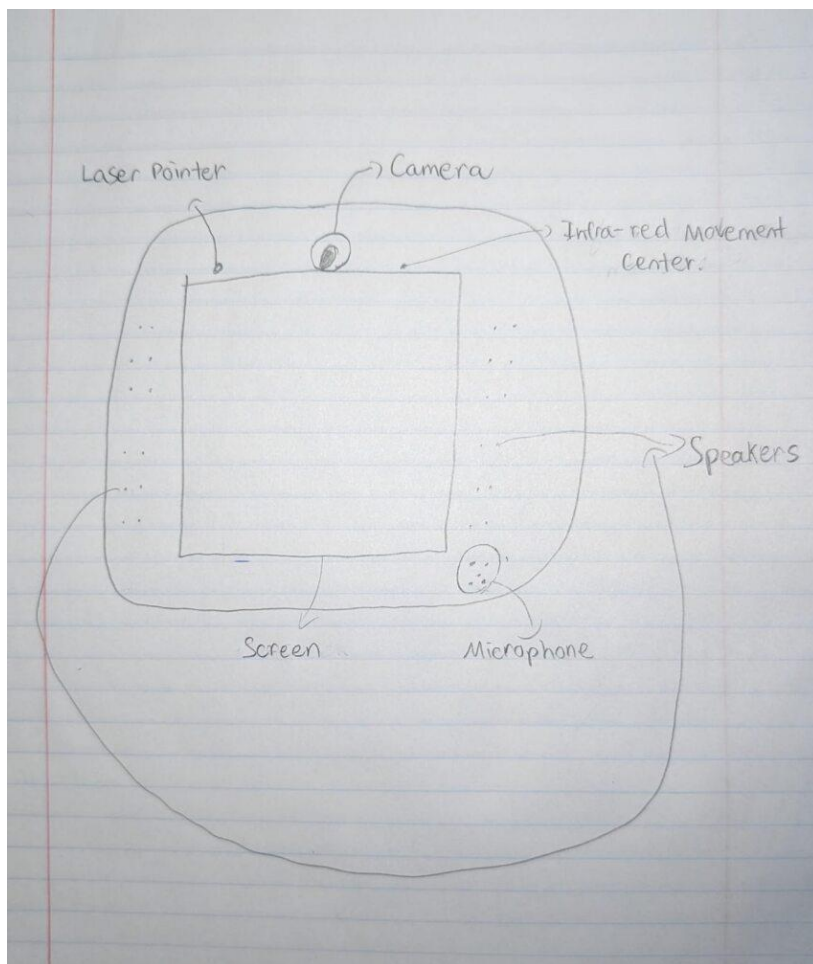 Laser Pointer
Camera
Infra-red Movement
Center.
Speakers
Screen
Microphone